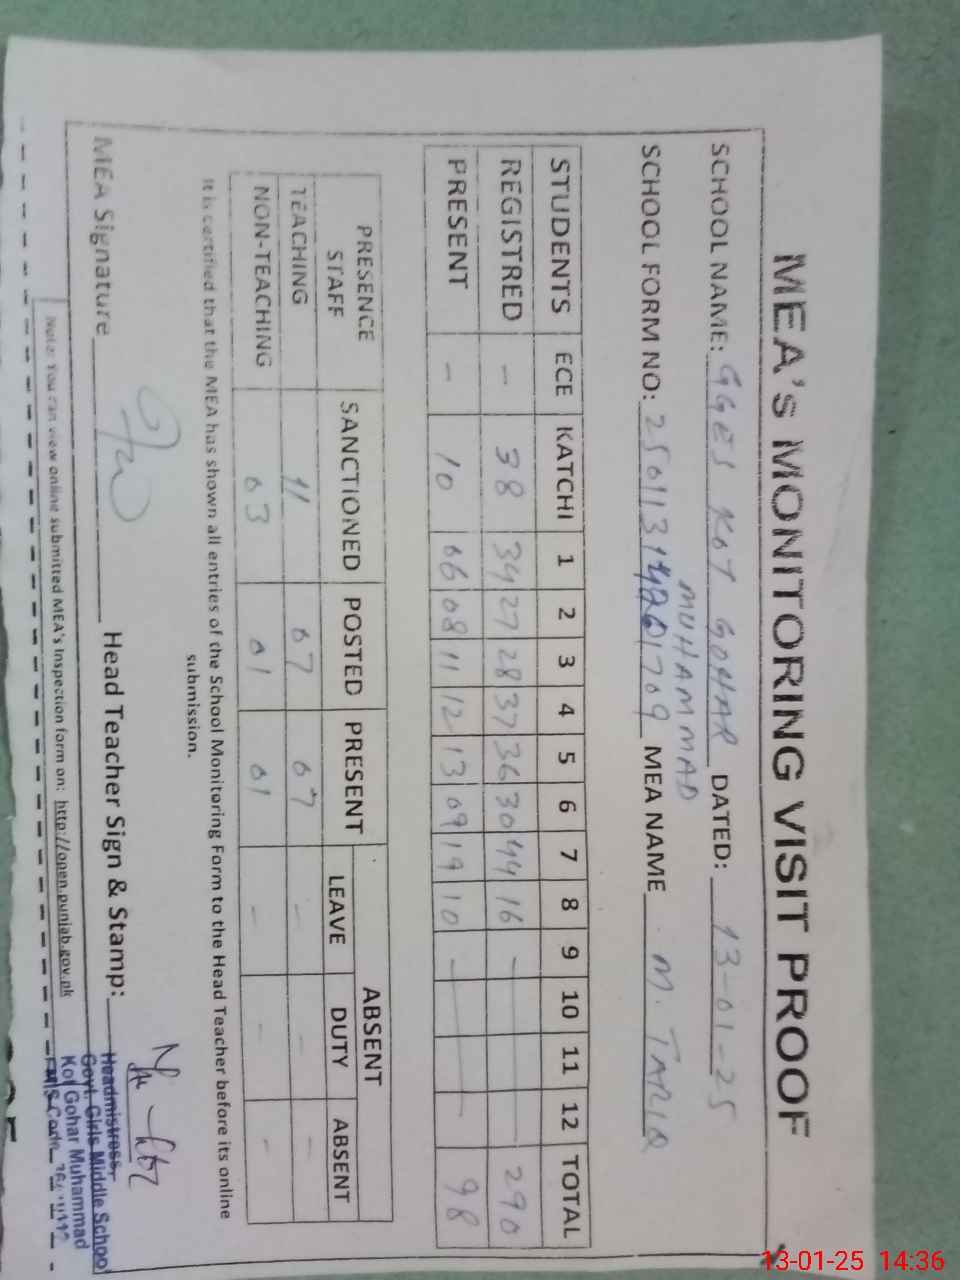 MEA's MONITORING VISIT PROOF
SCHOOL NAME: GGES KOT GOHAR DATED: 13-01-25
MUHAMMAD
SCHOOL FORM NO: MEA NAME M. TARIQ
STUDENTS ECE KATCHI 1 2 3 4 5 6 7 8 9 10 11 12 TOTAL
REGISTRED - 38 34 27 28 37 36 30 44 16 - 290
PRESENT - 10 06 08 11 12 13 09 19 10 - 98
PRESENCE STAFF SANCTIONED POSTED PRESENT ABSENT
LEAVE DUTY ABSENT
TEACHING 11 07 07 - - -
NON-TEACHING 03 01 01 - - -
It is certified that the MEA has shown all entries of the School Monitoring Form to the Head Teacher before its online
submission.
MEA Signature Head Teacher Sign & Stamp:
Headmistress,
Govt. Girls Middle School
Kot Gohar Muhammad
EMIS Code
Note: You can view online submitted MEA's Inspection form on: http://open.punjab.gov.pk
13-01-25 14:36